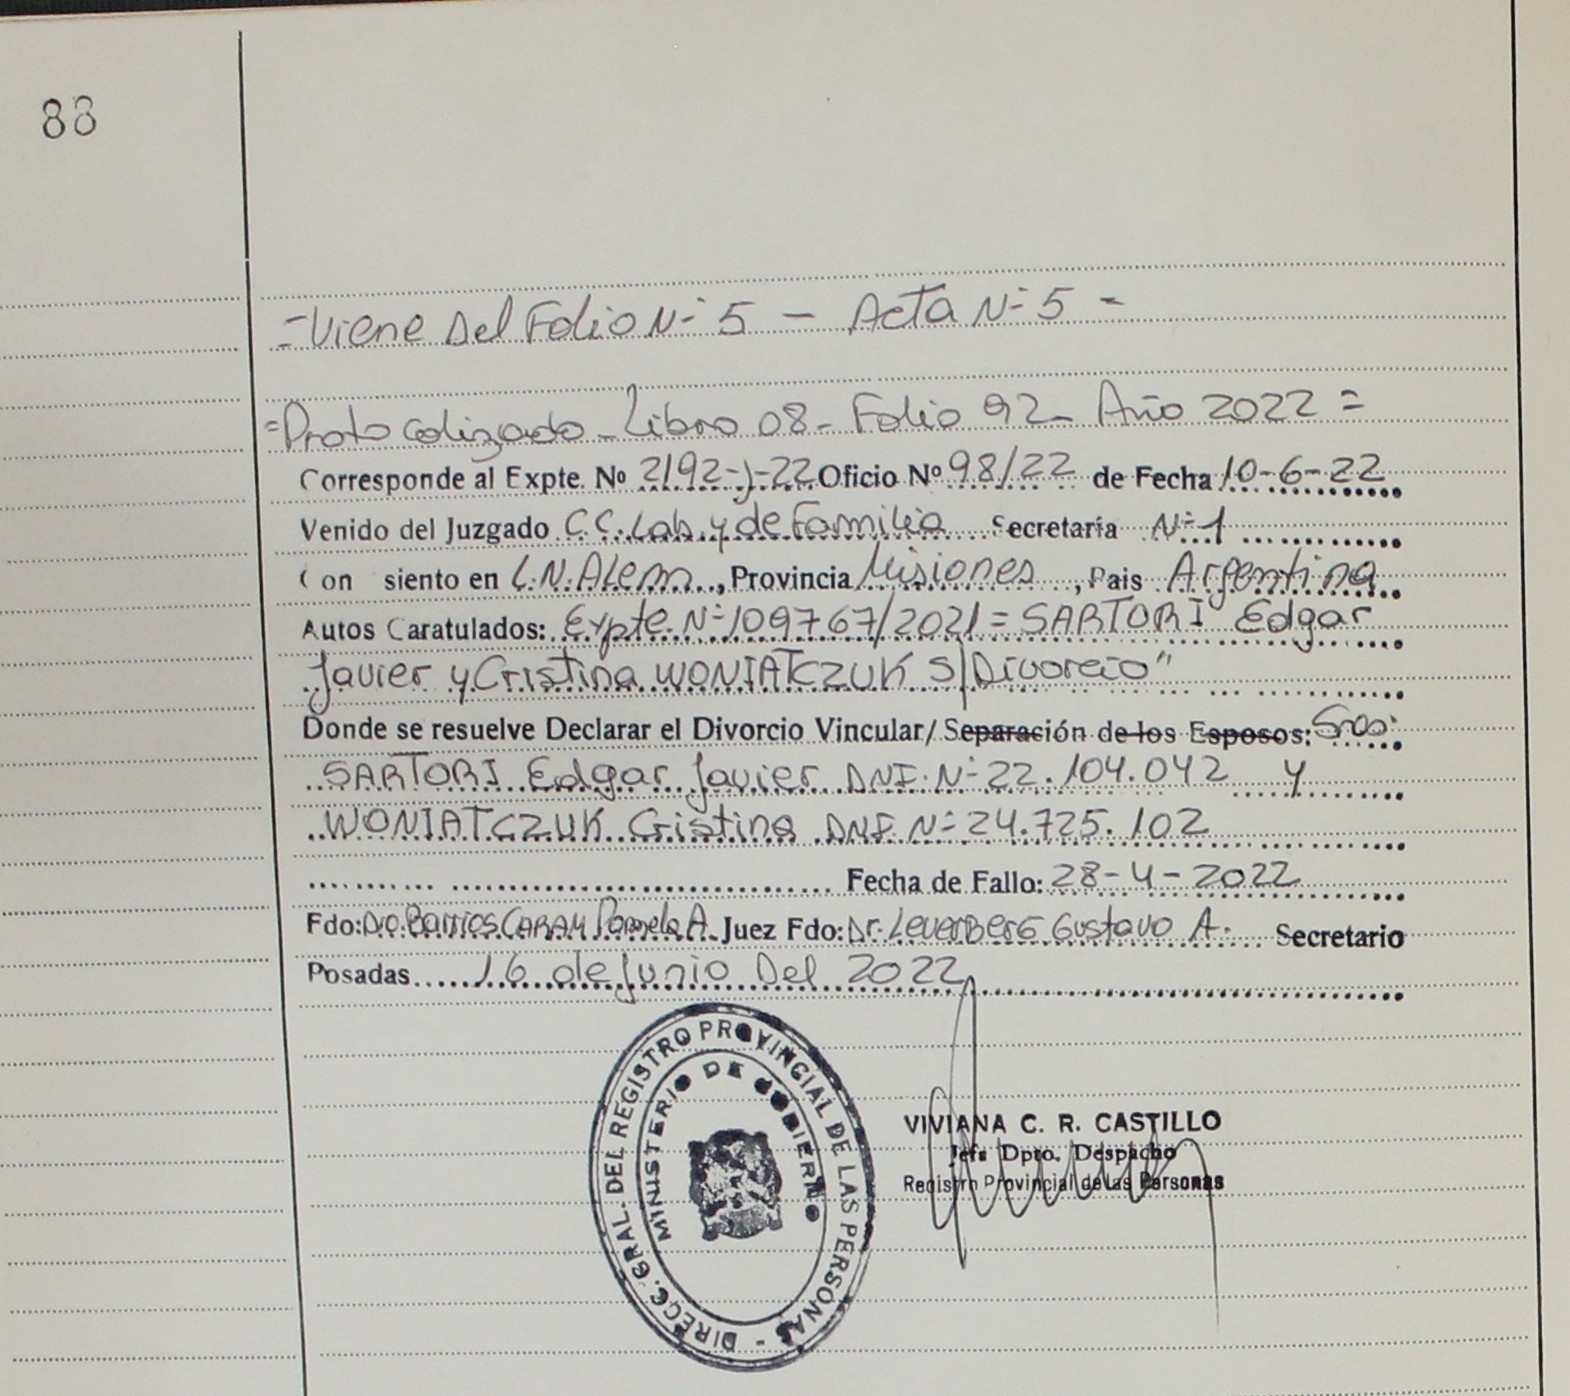 88
=Viene Del Folio N- 5 - Acta N- 5 =
=Protocolizado - Libro 08 - Folio 92 - Año 2022 =
Corresponde al Expte. Nº 2192-J-22 Oficio Nº 98/22 de Fecha 10-6-22
Venido del Juzgado C.C. Lab. y de Familia Secretaría N-1
Con siento en L.N. Alem, Provincia Misiones, Pais Argentina
Autos Caratulados: Expte. N-109767/2021 = SARTORI Edgar
Javier y Cristina WONIATCZUK S/Divorcio"
Donde se resuelve Declarar el Divorcio Vincular/ Separación de los Esposos: Sres:
SARTORI Edgar Javier DNI. N- 22.104.042 y
WONIATCZUK Cristina DNI N- 24.725.102
Fecha de Fallo: 28-4-2022
Fdo: Dra. Barrios CARAM Pamela A. Juez Fdo: Dr. Leverberg Gustavo A. Secretario
Posadas 16 de Junio Del 2022
DIRECC. GRAL. DEL REGISTRO PROVINCIAL DE LAS PERSONAS -
MINISTERIO DE GOBIERNO
VIVIANA C. R. CASTILLO
Jefe Dpto. Despacho
Registro Provincial de las Personas